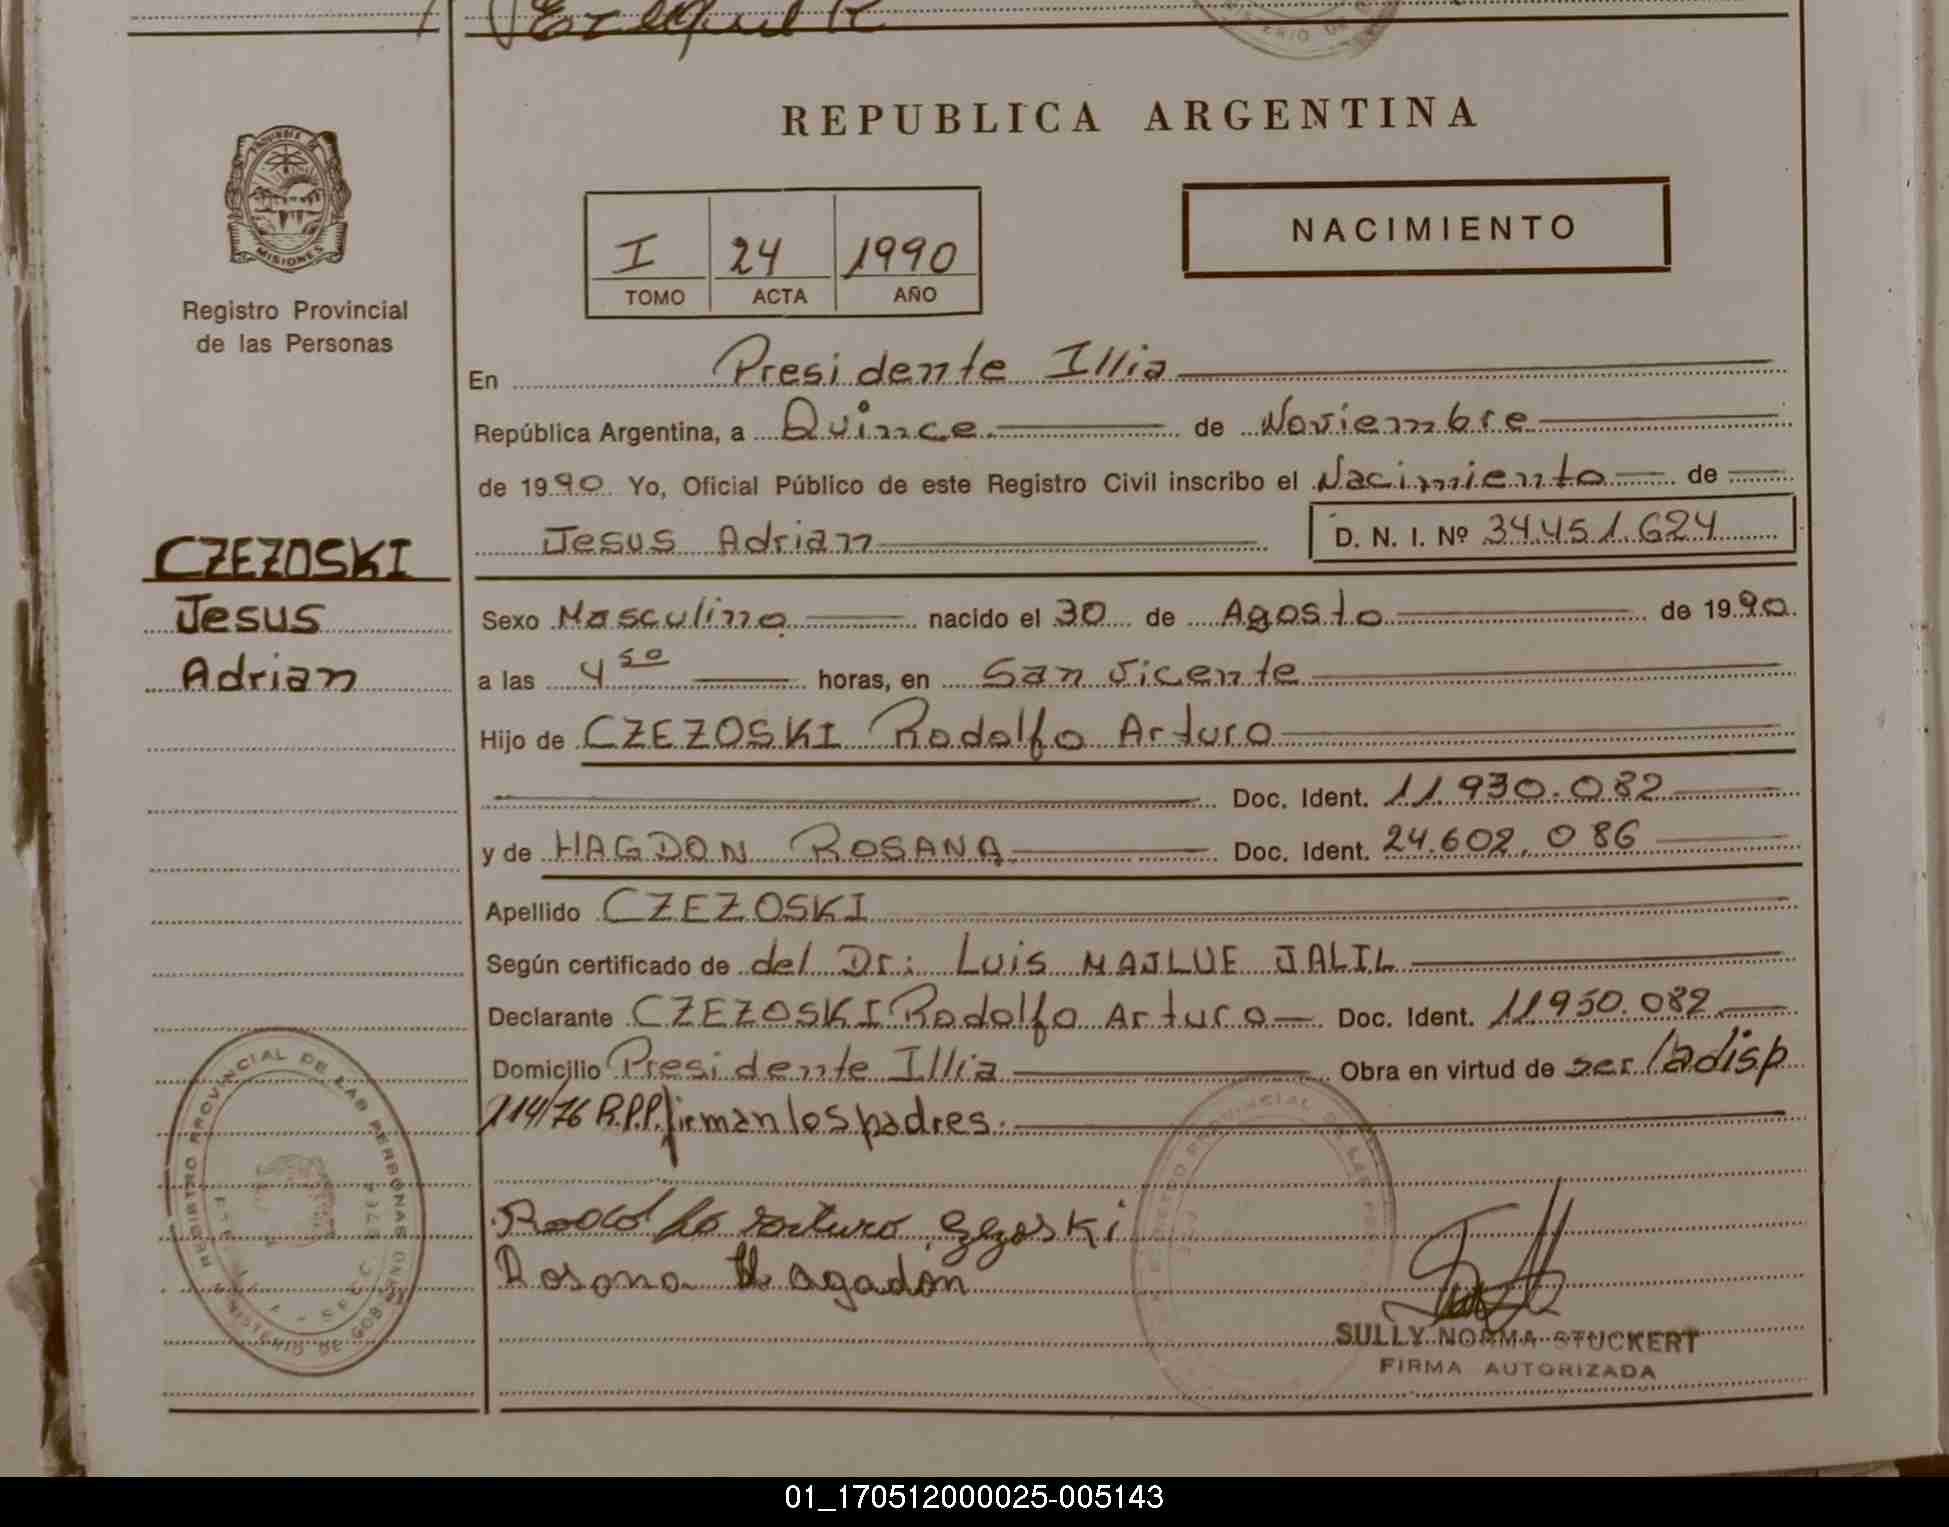 REPUBLICA ARGENTINA
PROVINCIA DE
MISIONES
Registro Provincial
de las Personas
I 24 1990
TOMO ACTA AÑO
NACIMIENTO
En Presidente Illia
República Argentina, a Quince de Noviembre
de 1990 Yo, Oficial Público de este Registro Civil inscribo el Nacimiento de
Jesus Adrian D. N. I. Nº 34.451.624
CZEZOSKI
Jesus
Adrian
Sexo Masculino nacido el 30 de Agosto de 1990.
a las 4 50 horas, en San Vicente
Hijo de CZEZOSKI Rodolfo Arturo
Doc. Ident. 11.930.082
y de HAGDON ROSANA Doc. Ident. 24.602.086
Apellido CZEZOSKI
Según certificado de del Dr: Luis MAJLUE JALIL
Declarante CZEZOSKI Rodolfo Arturo Doc. Ident. 11950.082
Domicilio Presidente Illia Obra en virtud de ser la disp
114/76 R.P.P. firman los padres.
REGISTRO PROVINCIAL DE LAS PERSONAS
Rosana Hagadon
SULLY NORMA STUCKERT
FIRMA AUTORIZADA
01_170512000025-005143